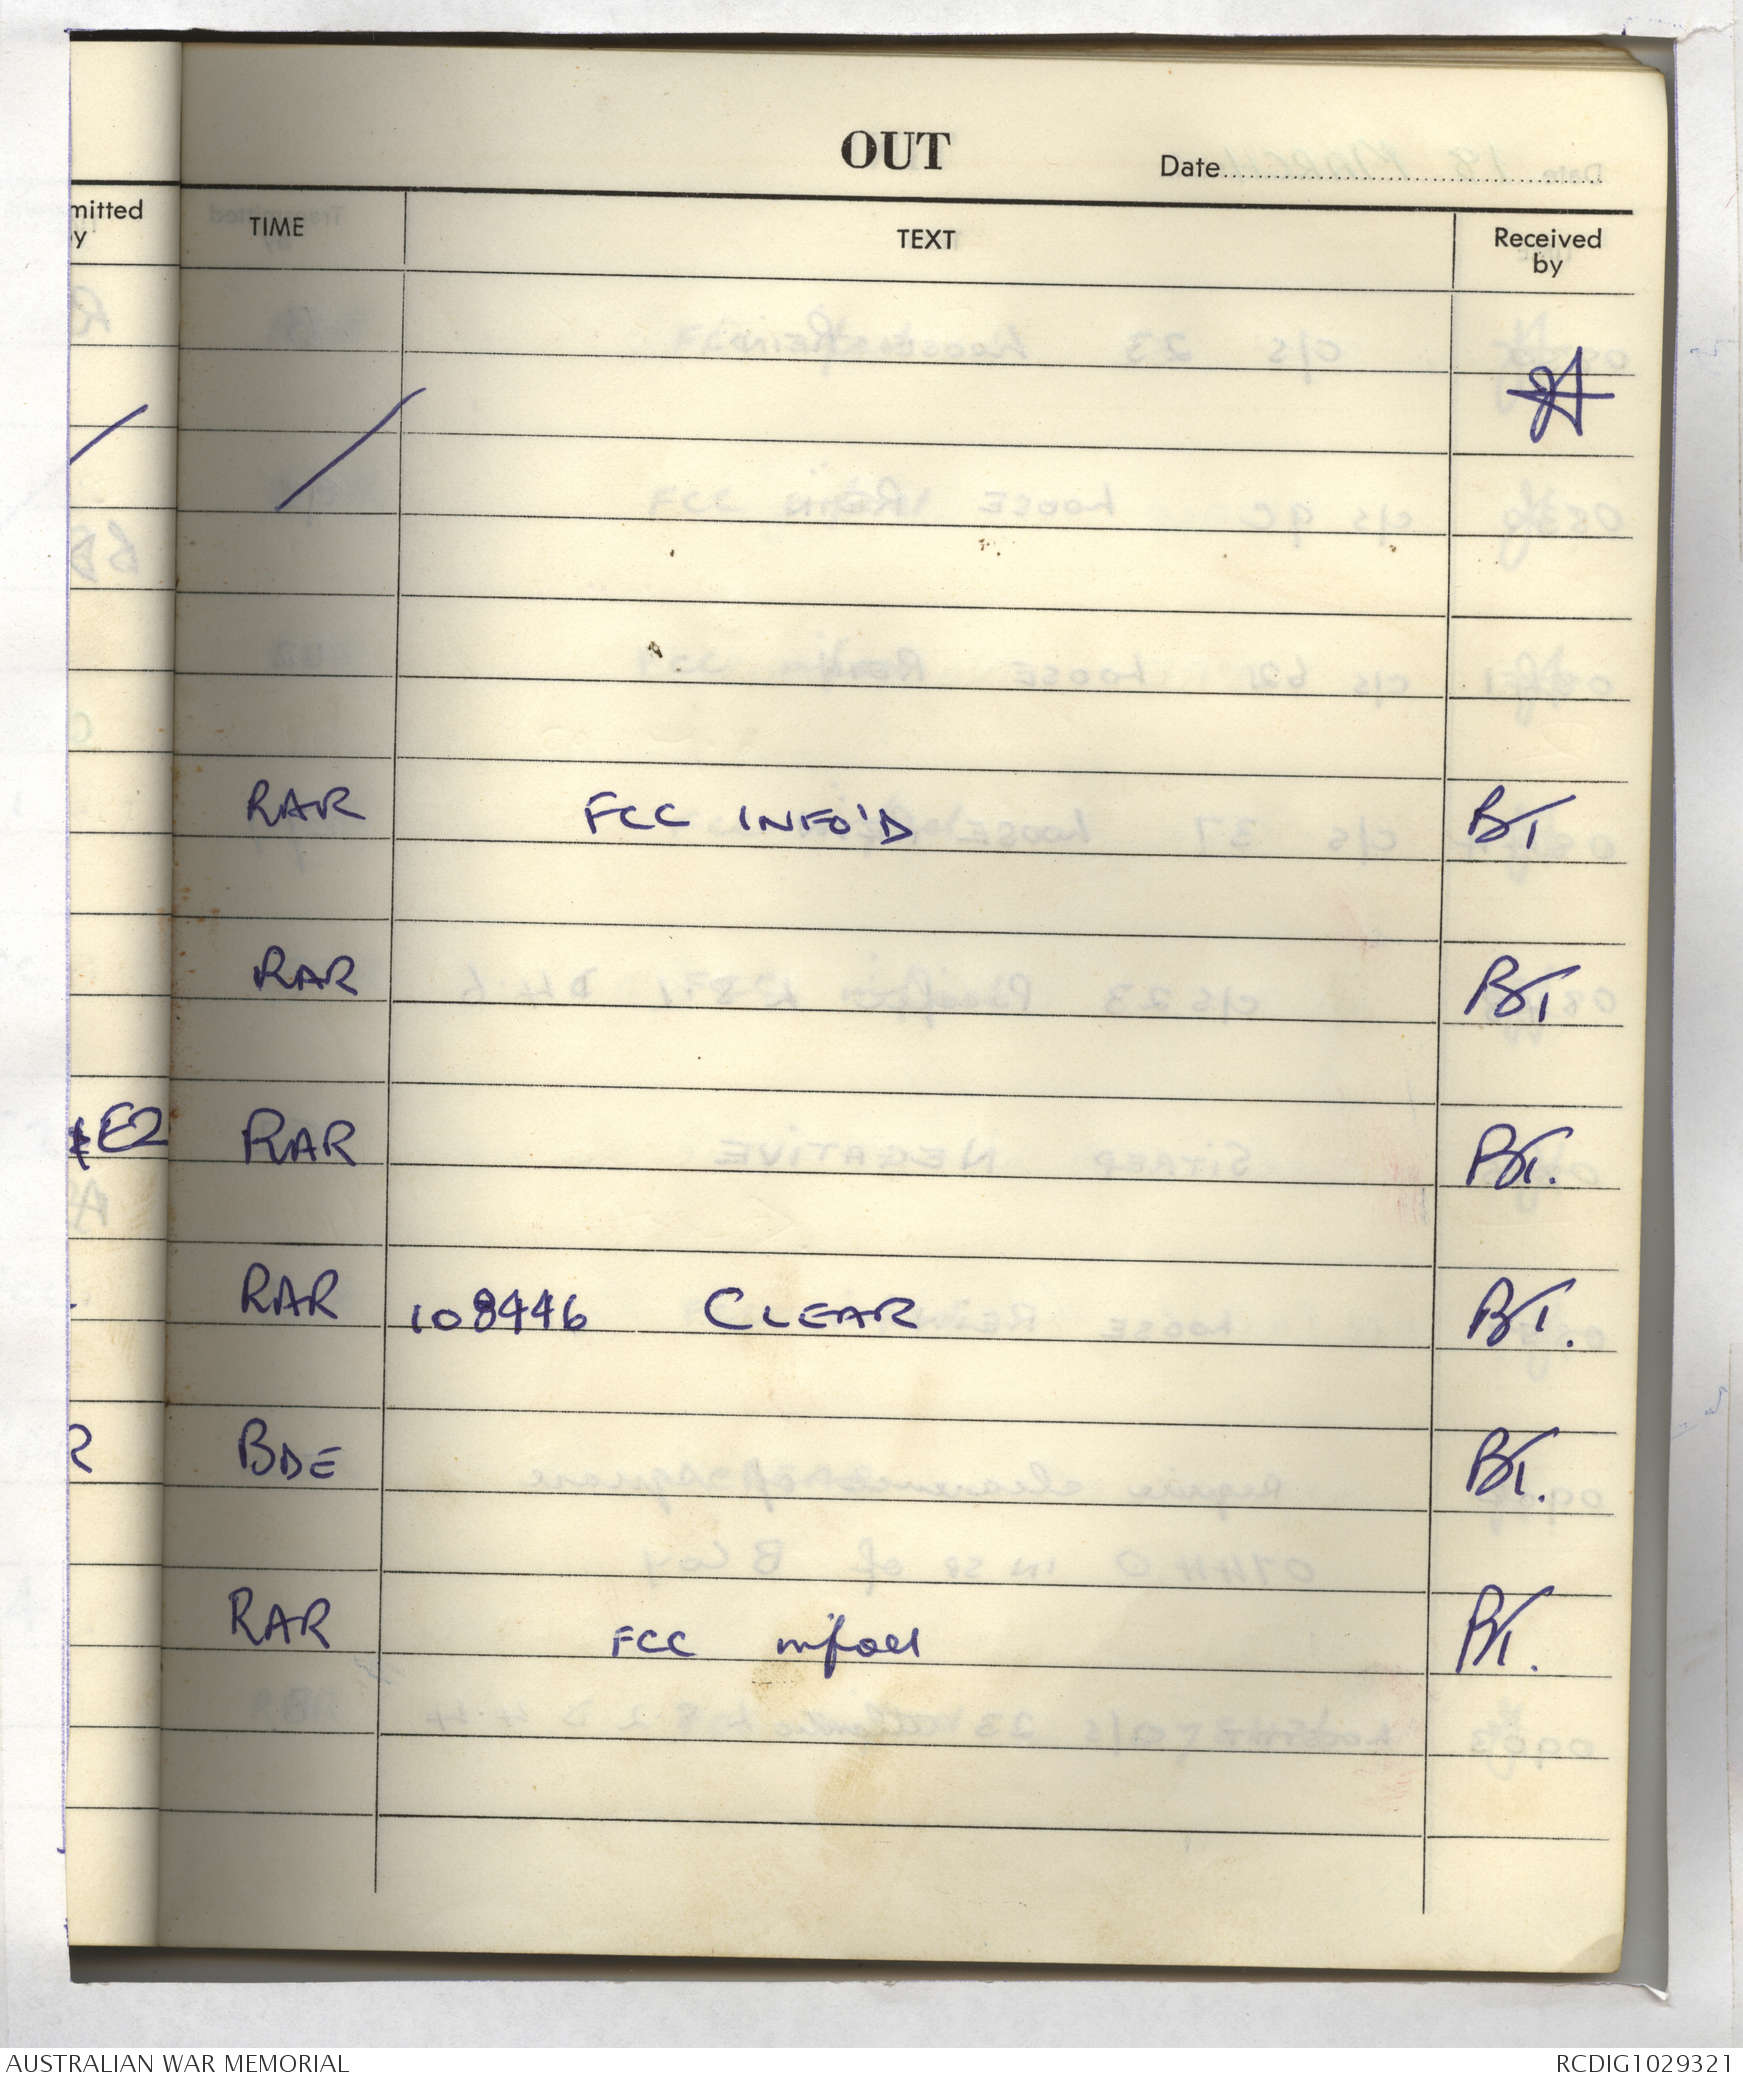 OUT
Date
mitted
y
TIME
TEXT
Received
by
RAR FCC INFO'D BT
RAR BT
E2 RAR BT.
RAR 108446 CLEAR BT.
R BDE BT.
RAR FCC infoed BT.
AUSTRALIAN WAR MEMORIAL
RCDIG1029321